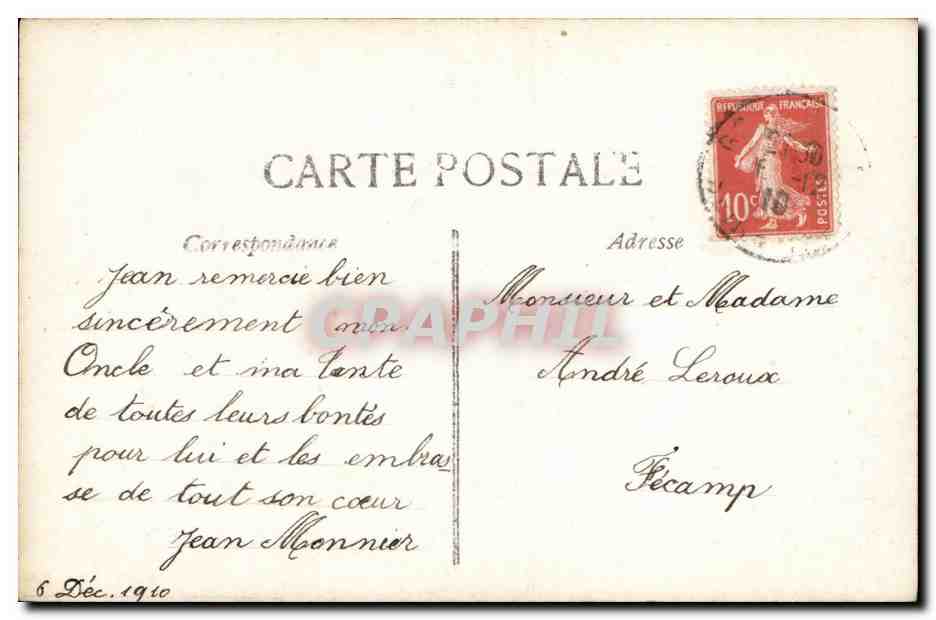 CARTE POSTALE
REPUBLIQUE FRANÇAISE
10c
POSTES
30
-12
10
Correspondance
Jean remercie bien
sincèrement mon
Oncle et ma Tante
de toutes leurs bontés
pour lui et les embras
se de tout son cœur
Jean Monnier
6 Déc. 1910
Adresse
Monsieur et Madame
André Leroux
Fécamp
CPAPHIL